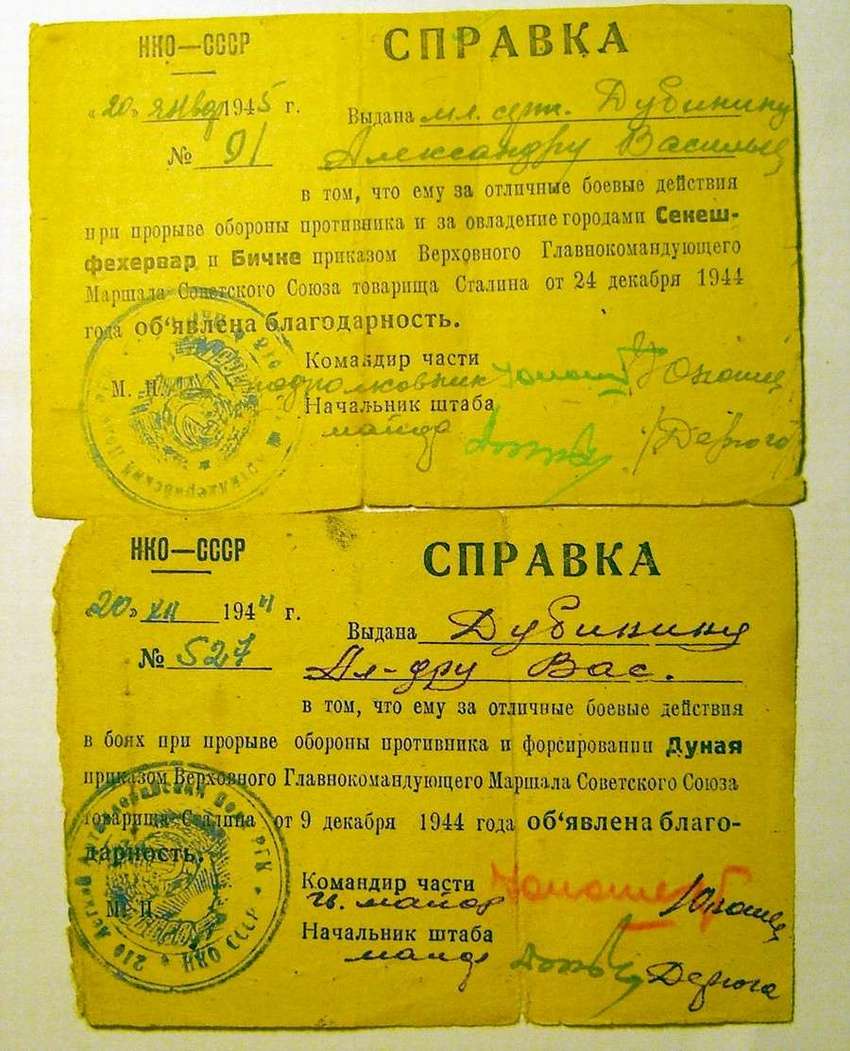 НКО—СССР
СПРАВКА
«20» январ 1945 г.
Выдана мл. серж. Дубинину
№ 91
Александру Василье
в том, что ему за отличные боевые действия
при прорыве обороны противника и за овладение городами Секеш-
фехервар и Бичке приказом Верховного Главнокомандующего
Маршала Советского Союза товарища Сталина от 24 декабря 1944
года об‘явлена благодарность.
Командир части
М. П.
подполковник
Начальник штаба
майор
НКО—СССР
СПРАВКА
«20» XII 1944 г.
Выдана Дубинину
№ 527
Ал-дру Вас.
в том, что ему за отличные боевые действия
в боях при прорыве обороны противника и форсировании Дуная
приказом Верховного Главнокомандующего Маршала Советского Союза
товарища Сталина от 9 декабря 1944 года об‘явлена благо-
дарность.
Командир части
гв. майор
М. П.
Начальник штаба
майор
Дерога
210 Легкий Артиллерийский Полк РГК * НКО СССР *